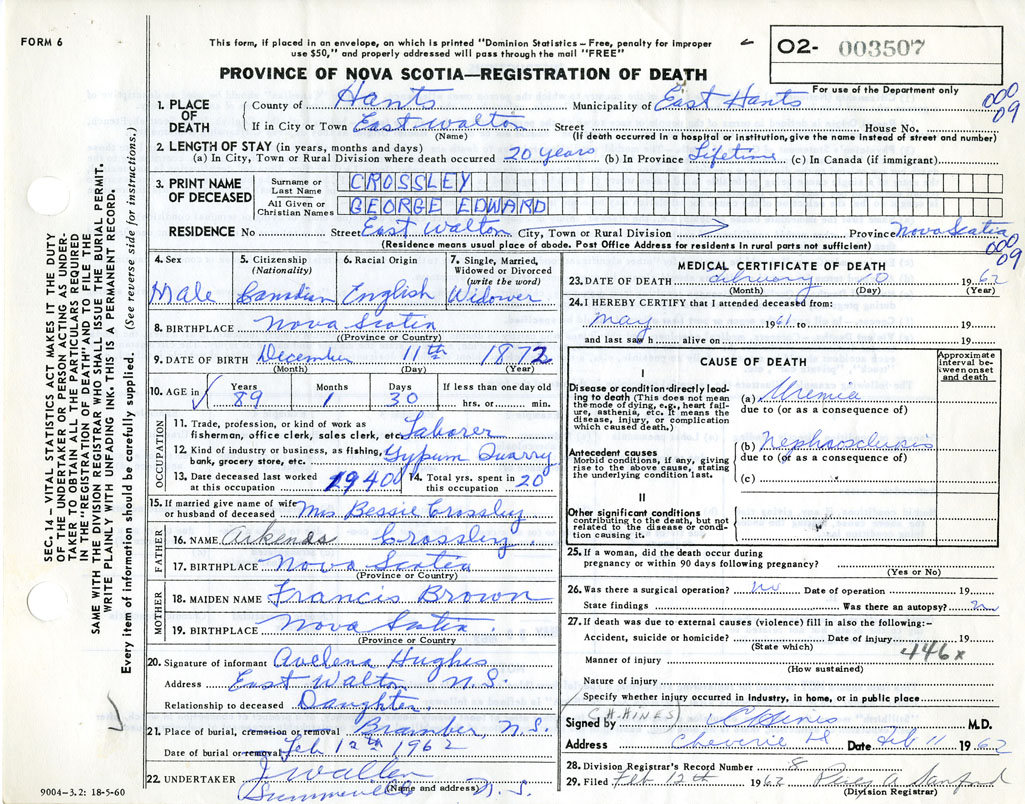 FORM 6
This form, if placed in an envelope, on which is printed "Dominion Statistics – Free, penalty for improper
use $50," and properly addressed will pass through the mail "FREE"
O2- 003507
For use of the Department only
PROVINCE OF NOVA SCOTIA—REGISTRATION OF DEATH
000
09
1. PLACE OF DEATH
County of Hants Municipality of East Hants
If in City or Town East Walton Street House No.
(Name) (If death occurred in a hospital or institution, give the name instead of street and number)
2. LENGTH OF STAY (in years, months and days)
(a) In City, Town or Rural Division where death occurred 20 years (b) In Province Lifetime (c) In Canada (if immigrant)
3. PRINT NAME OF DECEASED
Surname or Last Name CROSSLEY
All Given or Christian Names GEORGE EDWARD
RESIDENCE No Street East Walton City, Town or Rural Division Province Nova Scotia
(Residence means usual place of abode. Post Office Address for residents in rural parts not sufficient)
000
09
SEC. 14 – VITAL STATISTICS ACT MAKES IT THE DUTY
OF THE UNDERTAKER OR PERSON ACTING AS UNDER-
TAKER TO OBTAIN ALL THE PARTICULARS REQUIRED
IN THE "REGISTRATION OF DEATH" AND TO FILE THE
SAME WITH THE DIVISION REGISTRAR WHO SHALL ISSUE THE BURIAL PERMIT.
WRITE PLAINLY WITH UNFADING INK. THIS IS A PERMANENT RECORD.
Every item of information should be carefully supplied. (See reverse side for instructions.)
4. Sex
Male
5. Citizenship
(Nationality)
Canadian
6. Racial Origin
English
7. Single, Married,
Widowed or Divorced
(write the word)
Widower
8. BIRTHPLACE Nova Scotia
(Province or Country)
9. DATE OF BIRTH December 11th 1872
(Month) (Day) (Year)
10. AGE in Years Months Days If less than one day old
89 1 30 hrs. or min.
OCCUPATION
11. Trade, profession, or kind of work as
fisherman, office clerk, sales clerk, etc. Laborer
12. Kind of industry or business, as fishing,
bank, grocery store, etc. Gypum Quarry
13. Date deceased last worked
at this occupation 1940
14. Total yrs. spent in
this occupation 20
15. If married give name of wife
or husband of deceased Mrs Bessie Crossley
FATHER
16. NAME Arkenas Crossley
17. BIRTHPLACE Nova Scotia
(Province or Country)
MOTHER
18. MAIDEN NAME Francis Brown
19. BIRTHPLACE Nova Scotia.
(Province or Country
20. Signature of informant Avelena Hughes
Address East Walton N.S.
Relationship to deceased Daughter.
21. Place of burial, cremation or removal Bramber, N.S.
Date of burial or removal Feb 12th 1962
22. UNDERTAKER J Wallen
(Name and address)
Summerville N.S.
9004-3.2: 18-5-60
MEDICAL CERTIFICATE OF DEATH
23. DATE OF DEATH February 10 1962
(Month) (Day) (Year)
24. I HEREBY CERTIFY that I attended deceased from:
May 1961 to 19
and last saw h alive on 19
CAUSE OF DEATH
Approximate
interval be-
tween onset
and death
I
Disease or condition directly lead-
ing to death (This does not mean
the mode of dying, e.g., heart fail-
ure, asthenia, etc. It means the
disease, injury, or complication
which caused death.)
(a) Uremia
due to (or as a consequence of)
Antecedent causes
Morbid conditions, if any, giving
rise to the above cause, stating
the underlying condition last.
(b) Nephrosclerosis
due to (or as a consequence of)
(c)
II
Other significant conditions
contributing to the death, but not
related to the disease or condi-
tion causing it.
25. If a woman, did the death occur during
pregnancy or within 90 days following pregnancy?
(Yes or No)
26. Was there a surgical operation? no Date of operation 19
State findings Was there an autopsy? no
27. If death was due to external causes (violence) fill in also the following:-
Accident, suicide or homicide? Date of injury 19
(State which)
446x
Manner of injury
(How sustained)
Nature of injury
Specify whether injury occurred in industry, in home, or in public place
(C.H. HINES)
Signed by C H Hines M.D.
Address Cheverie Date Feb 11 1962
28. Division Registrar's Record Number 8
29. Filed Feb 12th 1962 Percy A Sanford
(Division Registrar)